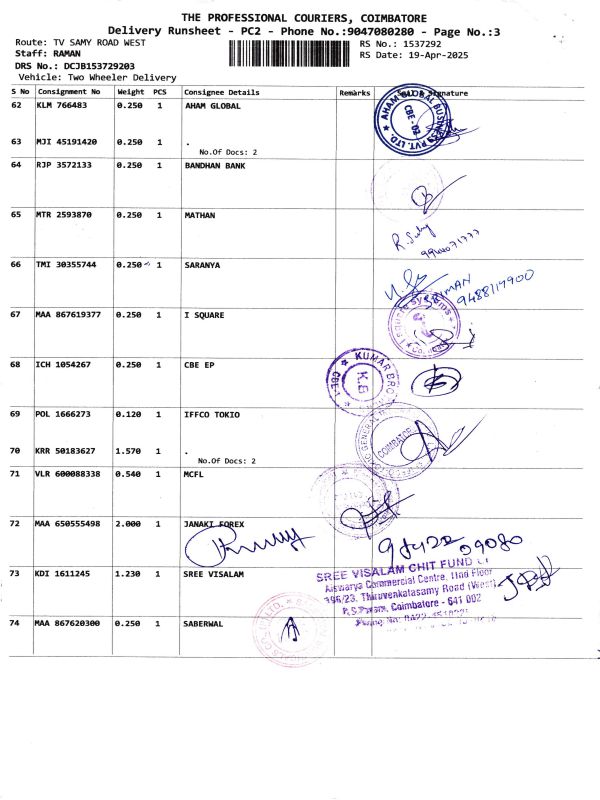 THE PROFESSIONAL COURIERS, COIMBATORE
Delivery Runsheet - PC2 - Phone No.:9047080280 - Page No.:3
Route: TV SAMY ROAD WEST
RS No.: 1537292
Staff: RAMAN
RS Date: 19-Apr-2025
DRS No.: DCJB153729203
Vehicle: Two Wheeler Delivery
S No Consignment No Weight PCS Consignee Details Remarks Signature
62 KLM 766483 0.250 1 AHAM GLOBAL
AHAM GLOBAL BUSINESS PVT. LTD. ★
CBE - 02
63 MJI 45191420 0.250 1 .
No.Of Docs: 2
64 RJP 3572133 0.250 1 BANDHAN BANK
65 MTR 2593870 0.250 1 MATHAN
66 TMI 30355744 0.250 1 SARANYA
9488119900
67 MAA 867619377 0.250 1 I SQUARE
68 ICH 1054267 0.250 1 CBE EP
KUMAR BRO
K.B
69 POL 1666273 0.120 1 IFFCO TOKIO
COIMBATOR
70 KRR 50183627 1.570 1 .
No.Of Docs: 2
71 VLR 600088338 0.540 1 MCFL
72 MAA 650555498 2.000 1 JANAKI FOREX
73 KDI 1611245 1.230 1 SREE VISALAM
SREE VISALAM CHIT FUND
Aiswarya Commercial Centre, IInd Floor
196/23, Thiruvenkatasamy Road (West)
R.S.Puram, Coimbatore - 641 002
74 MAA 867620300 0.250 1 SABERWAL